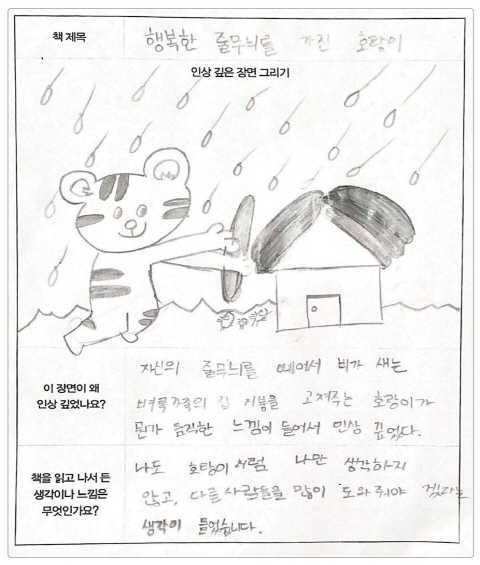 책 제목
행복한 줄무늬를 가진 호랑이
인상 깊은 장면 그리기
이 장면이 왜
인상 깊었나요?
자신의 줄무늬를 떼어서 비가 새는
벼룩가족의 집 지붕을 고쳐주는 호랑이가
뭔가 듬직한 느낌이 들어서 인상 깊었다.
책을 읽고 나서 든
생각이나 느낌은
무엇인가요?
나도 호랑이처럼 나만 생각하지
않고, 다른 사람들을 많이 도와줘야 겠다는
생각이 들었습니다.